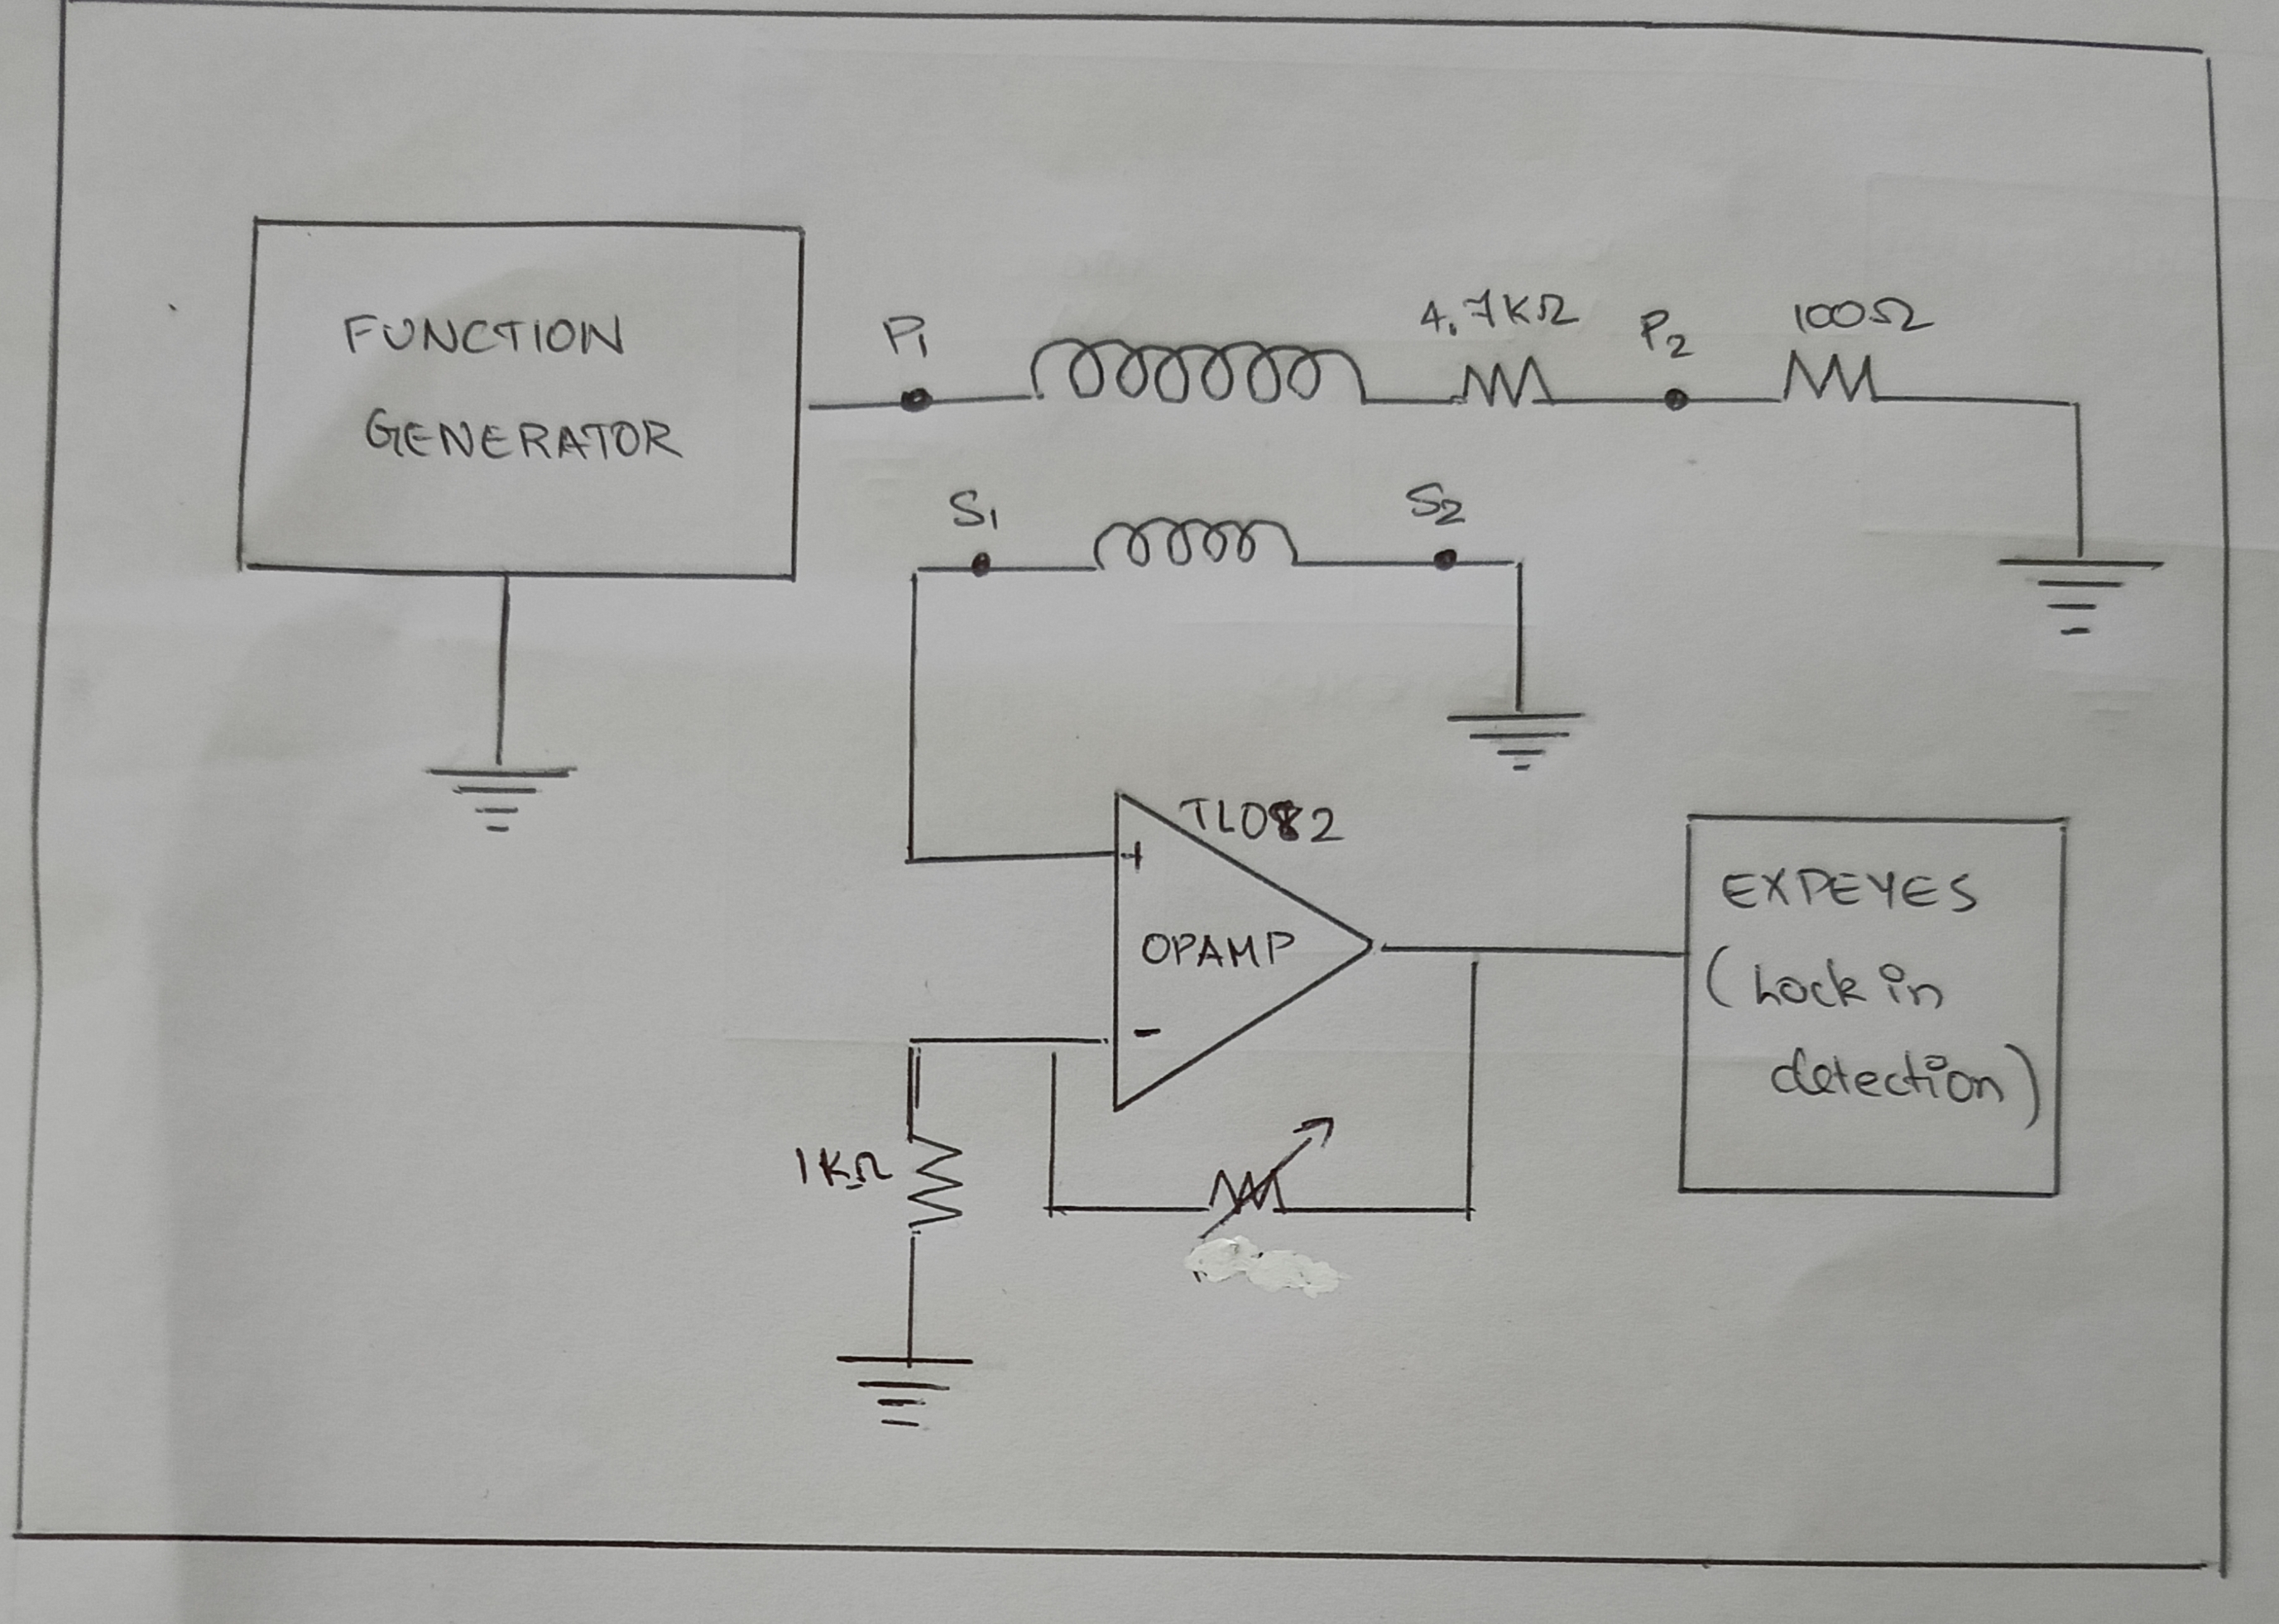 FUNCTION
GENERATOR
P1
4.7KΩ
P2
100Ω
S1
S2
TL082
+
OPAMP
-
1KΩ
EXPEYES
(Lock in
detection)